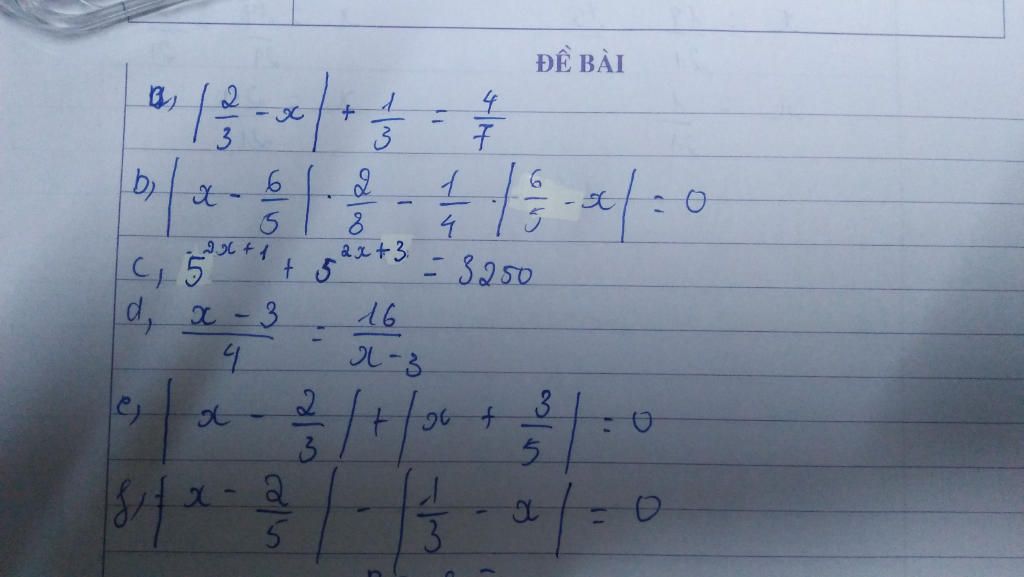 ĐỀ BÀI
a, |2/3 - x| + 1/3 = 4/7
b, |x - 6/5| . 2/8 - 1/4 . |6/5 - x| = 0
c, 5^2x+1 + 5^2x+3 = 3250
d, x - 3/4 = 16/x - 3
e, |x - 2/3| + |x + 3/5| = 0
f, |x - 2/5| - |1/3 - x| = 0